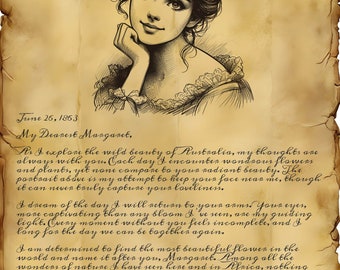 June 26, 1863
My Dearest Margaret,
As I explore the wild beauty of Australia, my thoughts are
always with you. Each day I encounter wondrous flowers
and plants, yet none compare to your radiant beauty. The
portrait above is my attempt to keep your face near me, though
it can never truly capture your loveliness.
I dream of the day I will return to your arms. Your eyes,
more captivating than any bloom I've seen, are my guiding
light. Every moment without you feels incomplete, and I
long for the day we can be together again.
I am determined to find the most beautiful flower in the
world and name it after you, Margaret. Among all the
wonders of nature I have seen here and in Africa, nothing